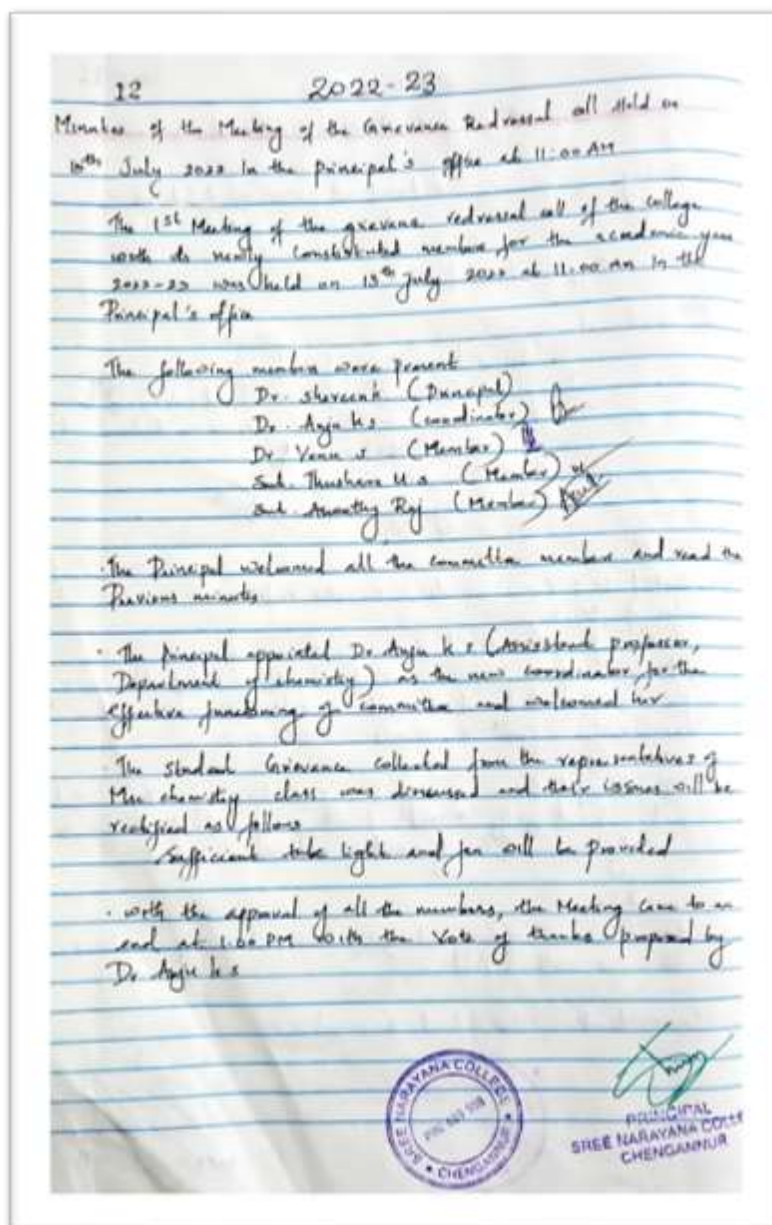 12 2022-23
Minutes of the Meeting of the Grievance Redressal cell Held on
July 2022 in the principal's office at 11:00 AM
The 1st Meeting of the grievance redressal cell of the college
with its newly constituted members for the academic year
2022-23 was held on 13th July 2022 at 11.00 Am in the
Principal's office
The following members were present
Dr. (Principal)
Dr. Anju k s (coordinator)
Dr. Venu s (Member)
Smt. Thushara U s (Member)
Smt. Raj (Member)
. The Principal welcomed all the committee members and read the
Previous minutes
. The principal appointed Dr. Anju k s (Assistant professor,
Department of chemistry) as the new coordinator for the
effective functioning of committee and welcomed her
. The student Grievance collected from the representatives of
Msc chemistry class was discussed and their issues will be
rectified as follows
Sufficient tube light and fan will be provided
. with the approval of all the members, the Meeting came to an
end at 1.00 PM with the Vote of thanks proposed by
Dr. Anju k s
SREE NARAYANA COLLEGE
CHENGANNUR
PRINCIPAL
SREE NARAYANA COLLE
CHENGANNUR